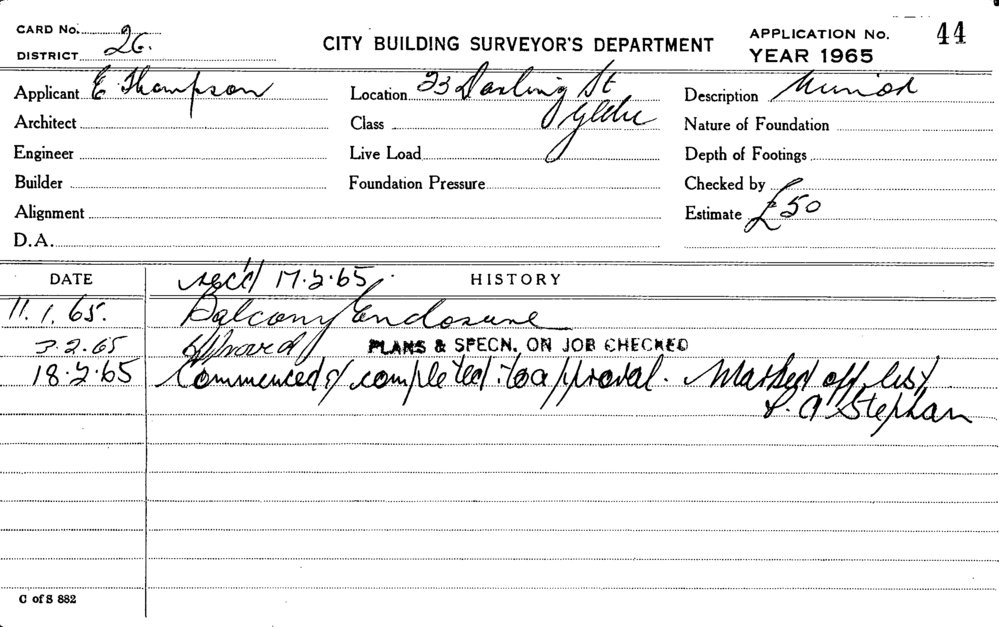 CARD No.
DISTRICT 26.
CITY BUILDING SURVEYOR'S DEPARTMENT
APPLICATION No. 44
YEAR 1965
Applicant E Thompson
Location 23 Darling St
Glebe
Description Minor
Architect
Class
Nature of Foundation
Engineer
Live Load
Depth of Footings
Builder
Foundation Pressure
Checked by
Alignment
Estimate £50
D.A.
DATE
HISTORY
rec'd 17.2.65.
11.1.65. Balcony Enclosure
3.2.65 Approved PLANS & SPECN. ON JOB CHECKED
18.2.65 Commenced & completed to approval. Marked off list
P. A Stephan
C of S 882